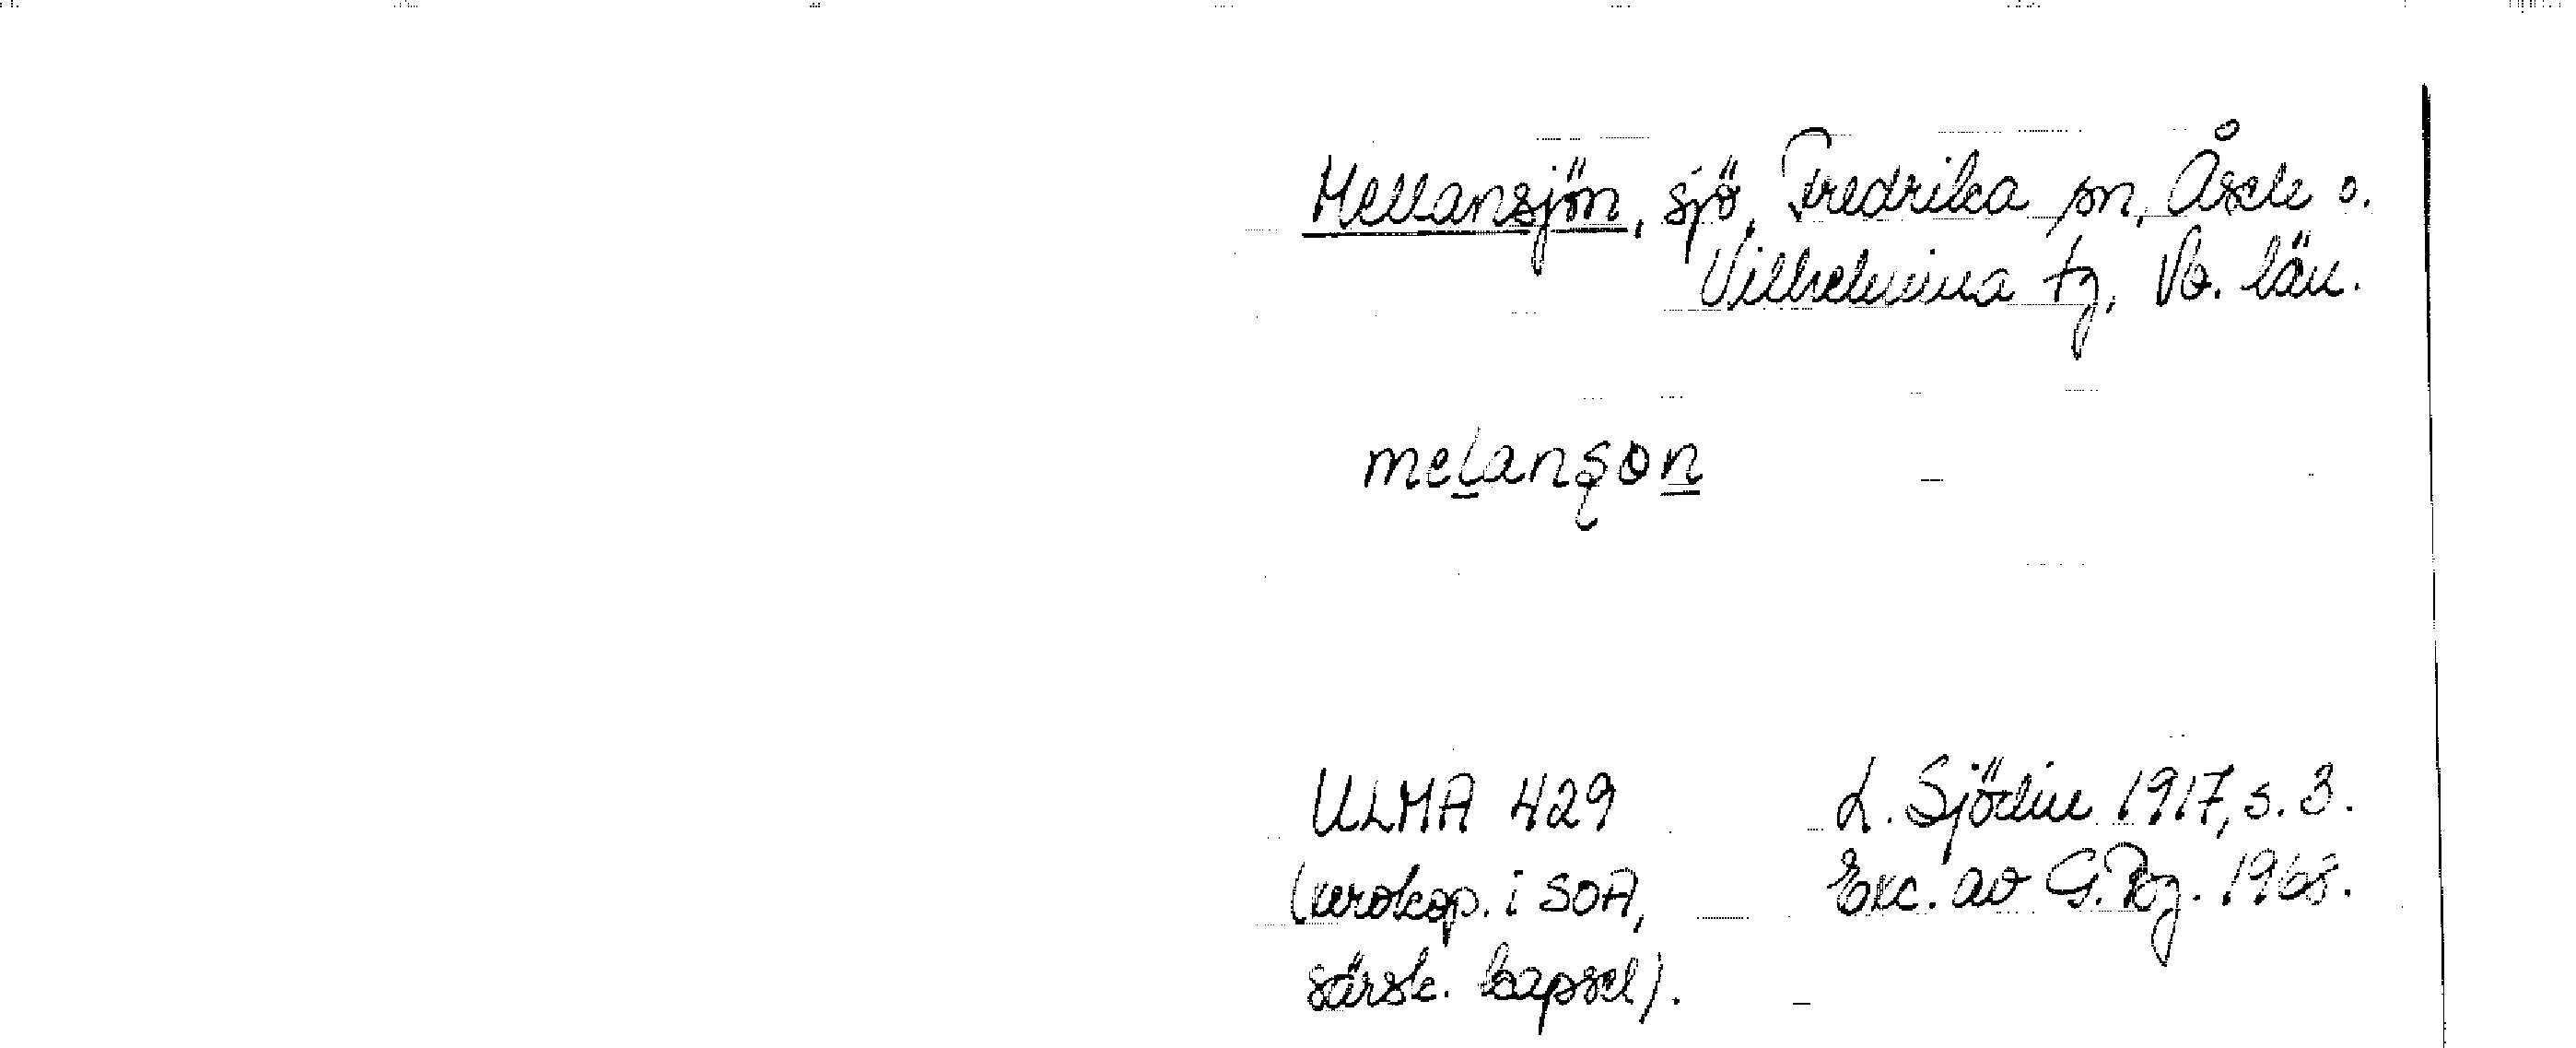 Mellansjön, sjö, Fredrika sn, Åsele o.
Vilhelmina tg, Vb. län.
melanşon
ULMA 429
(xerokop. i SOA,
särsk. kapsel).
L. Sjödin 1917, s. 3.
Exc. av G. Rg. 1968.